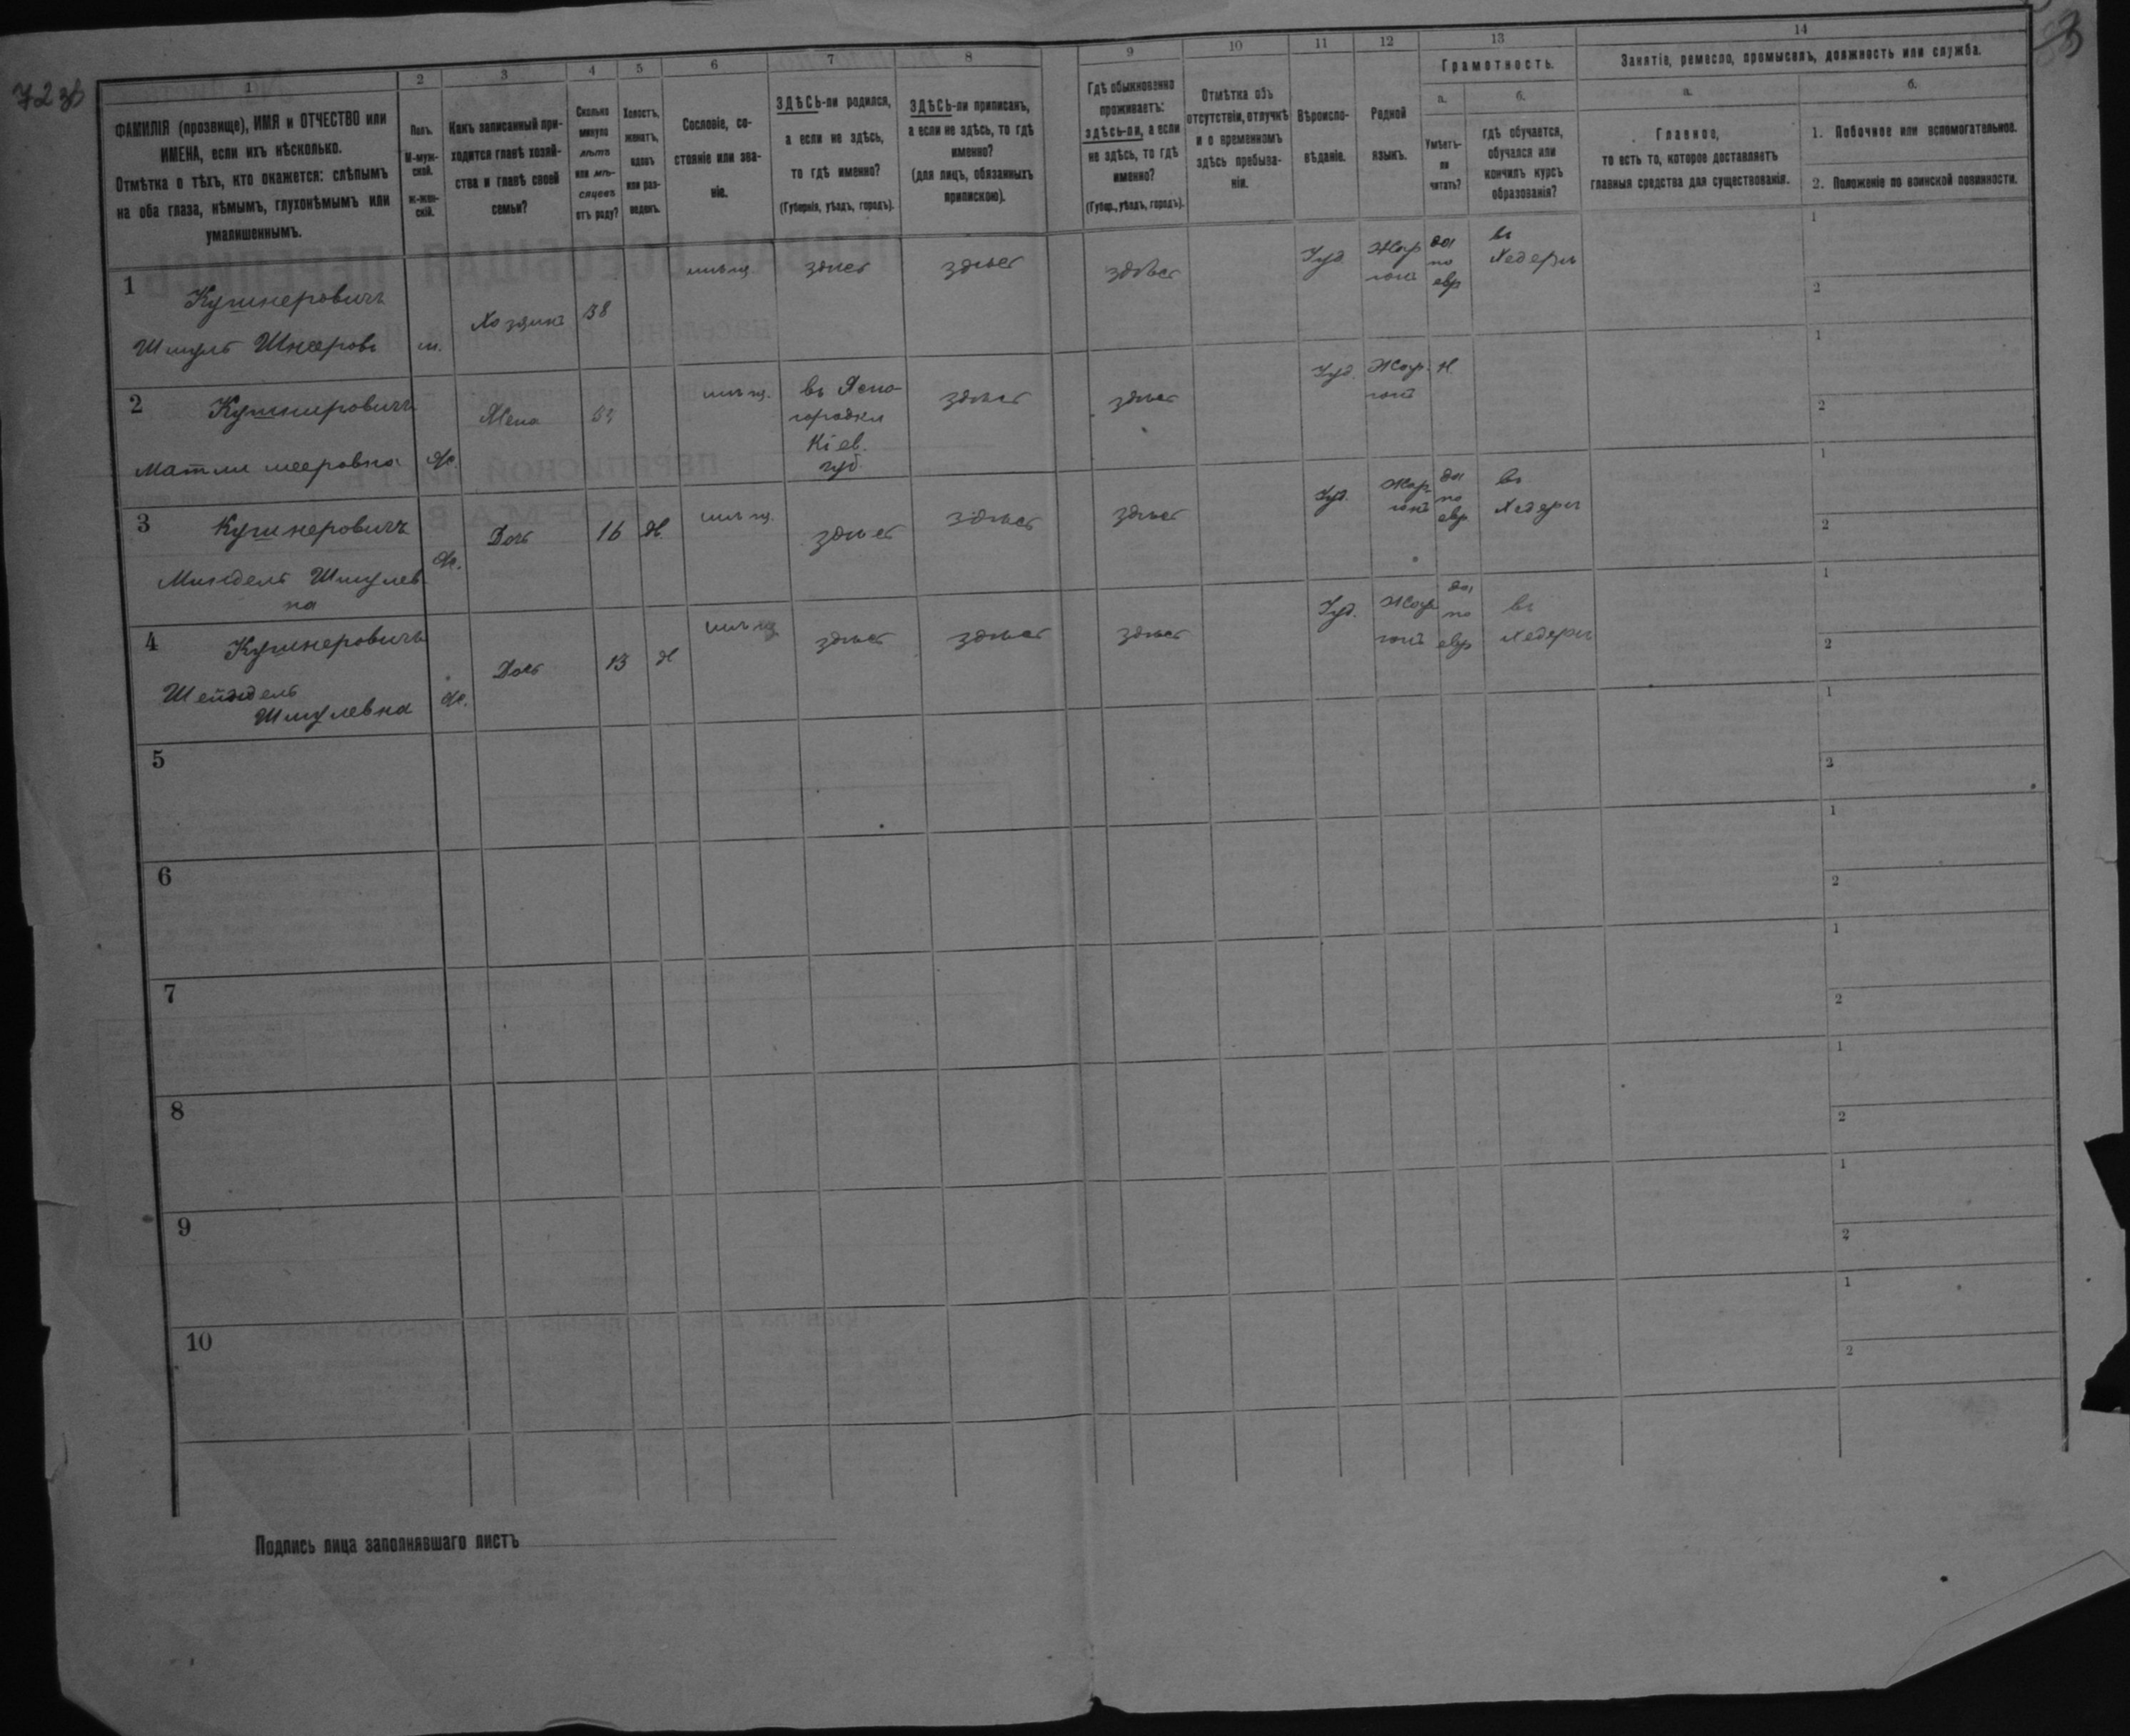 723
3
1
2
3
4
5
6
7
8
9
10
11
12
13
14
ФАМИЛІЯ (прозвище), ИМЯ и ОТЧЕСТВО или
ИМЕНА, если ихъ нѣсколько.
Отмѣтка о тѣхъ, кто окажется: слѣпымъ
на оба глаза, нѣмымъ, глухонѣмымъ или
умалишеннымъ.
Полъ.
М-муж-
ской.
Ж-жен-
скій.
Какъ записанный при-
ходится главѣ хозяй-
ства и главѣ своей
семьи?
Сколько
минуло
лѣтъ
или мѣ-
сяцевъ
отъ роду?
Холостъ,
женатъ,
вдовъ
или раз-
веденъ.
Сословіе, со-
стояніе или зва-
ніе.
ЗДѢСЬ-ли родился,
а если не здѣсь,
то гдѣ именно?
(Губернія, уѣздъ, городъ).
ЗДѢСЬ-ли приписанъ,
а если не здѣсь, то гдѣ
именно?
(для лицъ, обязанныхъ
припискою).
Гдѣ обыкновенно
проживаетъ:
здѣсь-ли, а если
не здѣсь, то гдѣ
именно?
(Губер., уѣздъ, городъ).
Отмѣтка объ
отсутствіи, отлучкѣ
и о временномъ
здѣсь пребыва-
ніи.
Вѣроиспо-
вѣданіе.
Родной
языкъ.
Грамотность.
а.
Умѣетъ-
ли
читать?
б.
гдѣ обучается,
обучался или
кончилъ курсъ
образованія?
Занятіе, ремесло, промыселъ, должность или служба.
а.
Главное,
то есть то, которое доставляетъ
главныя средства для существованія.
б.
1. Побочное или вспомогательное.
2. Положеніе по воинской повинности.
1
Кушнеровичъ
Шмуль Шнееровъ
м.
Хозяинъ
58
мѣщ.
здѣсь
здѣсь
здѣсь
Іуд.
Жар
гонъ
да
по
евр
въ
Хедерѣ
1
2
2
Кушнировичъ
Матля мееровна
Ж.
Жена
мѣщ.
въ Ясно-
городки
Кіев.
губ.
здѣсь
здѣсь
Іуд.
Жар.
гонъ
Н
1
2
3
Кушнеровичъ
Миндель Шмулев
на
Ж.
Дочь
16
Д.
мѣщ.
здѣсь
здѣсь
здѣсь
Іуд.
Жар
гонъ
да
по
евр
въ
Хедерѣ
1
2
4
Кушнеровичъ
Шейндель
Шмулевна
Ж.
Дочь
13
Д
мѣщ
здѣсь
здѣсь
здѣсь
Іуд.
Жар
гонъ
да
по
евр
въ
Хедерѣ
1
2
5
1
2
6
1
2
7
1
2
8
1
2
9
1
2
10
1
2
Подпись лица заполнявшаго листъ